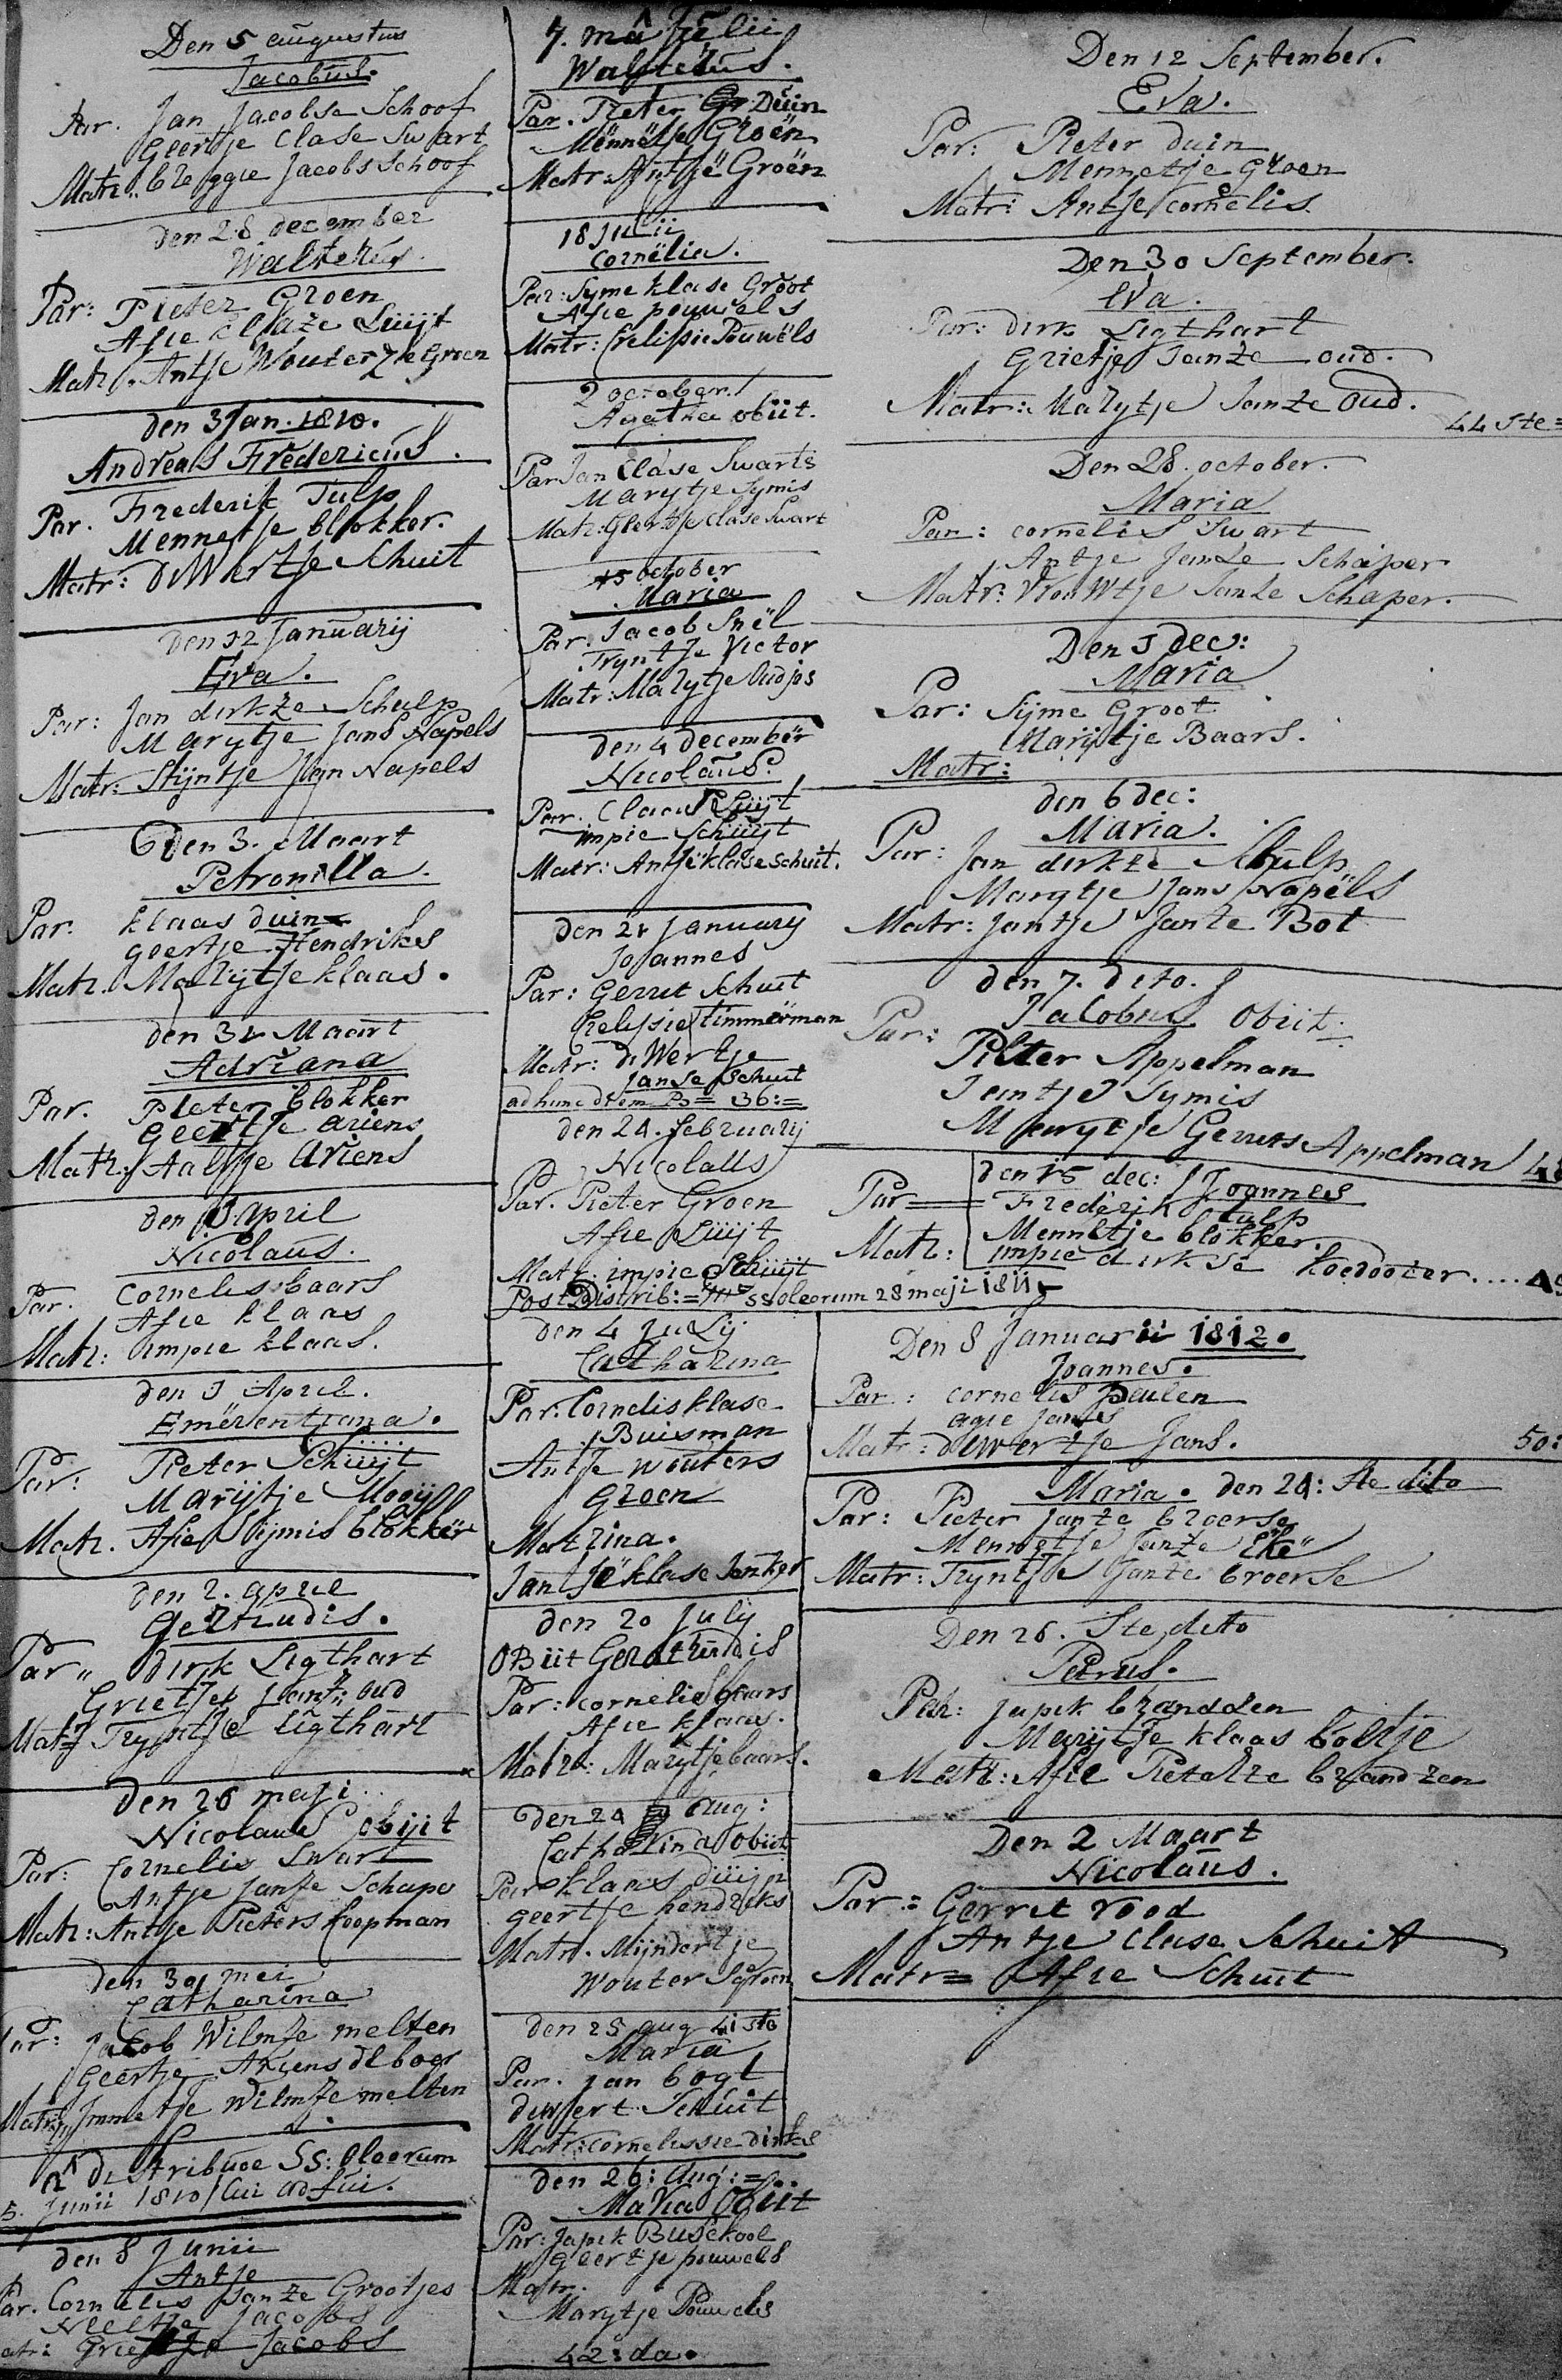 Den 5 augustus
Jacobus.
Par. Jan Jacobse Schoof
Geertje Clase Swart
Matr: breggie Jacobs Schoof
den 28 december
Walterus.
Par: Pieter Groen
Afie Claze Lüijt
Matr. Antje Wouterze Groen
den 3 Jan. 1810.
Andreas Fredericus.
Par. Frederik Tulp
Mennetje blokker.
Matr: diwertje Schuit
den 12 Januarij
Eva.
Par: Jan dirkze Schulp
Marytje Jans Napels
Matr: Stijntje Jan Napels
den 3. Maart
Petronilla.
Par. klaas duin
geertje Hendriks
Matr. Marijtje klaas.
den 31 Maart
Adriana
Par. Pieter blokker
Geertje Ariens
Matr: Aaltje Ariens
den April
Nicolaus.
Par. Cornelis baars
Afie klaas
Matr: impie klaas.
den April.
Emerentiana.
Par: Pieter Schüijt
Marijtje Mooij
Matr. Afie Sijmis blokker
den 2. april
Gertrudis.
Par" dirk Ligthart
Grietje Jantz oud
Matr Tryntje ligthart
den 26 maji
Nicolaus obijit
Par: Cornelis Swart
Antje Janse Schaper
Matr: Antje Pieters koopman
den 30 mei
Catharina
Par: Jacob Wilmse melten
Geertje Ariens de boer
Matr: Immetje Wilmse melten
distribuee SS: Oleorum
5. Junii 1810 cui adfui.
den 8 Junii
Antje
Par. Cornelis Janze Grootjes
Neeltje Jacobs
Matr: Grietje Jacobs
7. ma Julii
Walterus.
Par. Pieter Duin
Mennetje Groen
Matr: Antje Groen
18 Julii
Cornelia.
Par: Syme klase Groot
Afie pouwels
Matr: Crelisie Pouwels
2 october.
Agatha obiit.
Par Jan Clase Swarts
Marytje Symis
Matr: Geertje Clase Swart
15 october
Maria
Par: Jacob Snel
Tryntje Victor
Matr: Marytje Oudjos
den 4 december
Nicolaus.
Par. Claas Lüijt
impie Schüijt
Matr: Antje klase schuit.
den 21 January
Joannes
Par: Gerrit Schuit
Crelisie Timmerman
Matr: diwertje
Janse Schuit
ad hunc diem Ps= 36:=
den 24. februarij
Nicolaus
Par. Pieter Groen
Afie Lüijt
Matr. impie Schüijt
Post Distrib:= SS oleorum 28 maji 1811
den 4 July
Catharina
Par. Cornelis klase
Buisman
Antje wouters
Groen
Matrina.
Jantje klase Jonker
den 20 July
Obiit Gerathrudis
Par: cornelis baars
Afie klaas.
Matr: Marytje baars.
den 24 aug:
Catharina obiit
Par klaas düijn
geertje hendriks
Matr. Mijndertje
Wouters groen
den 25 aug 41ste
Maria
Par. jan bogt
diwert Schuit
Matr: cornelissie dirks
den 26: Aug:=
Maria Obiit
Par: Japik Buschool
Geertje pouwels
Matr.
Marytje Pouwels
42:da.
Den 12 September.
Eva.
Par: Pieter duin
Mennetje Groen
Matr: Antje cornelis.
Den 30 September.
Eva.
Par: dirk Ligthart
Grietje Janze oud.
Matr: Marytje Janze Oud.
44 ste=
Den 28. october.
Maria
Par: cornelis Swart
Antje Janze Schaper
Matr: Vrouwtje Janze Schaper.
Den 5 Dec:
Maria
Par: Sijme Groot
Marijtje Baars.
Matr:
den 6 dec:
Maria.
Par: Jan dirkze Schulp
Marytje Jans Napels
Matr: Jantje Janze Bot
den 7. dito.
Jacobus Obiit.
Par: Pieter Appelman
Jantje Symis
Marytje Gerrits Appelman
den 15 dec: Joannes
Par Frederik Tulp
Mennetje blokker.
Matr: impie dirkse koedooder.... 49
Den 8 Januarii 1812.
Joannes.
Par: cornelis peulen
agie Janses
Matr: dewertje Jans.
50:
Maria. den 24: Ste dito
Par: Pieter Janze broerse
Mennetje Janze
Matr: Tryntje Janze broerse
Den 26. Ste dito
Petrus.
Par: Japik brandden
Marijtje klaas boltje
Matr: Afie Pieterze brandzen
Den 2 Maart
Nicolaus.
Par: Gerret rood
Antje Clase Schuit
Matr= Afie Schuit